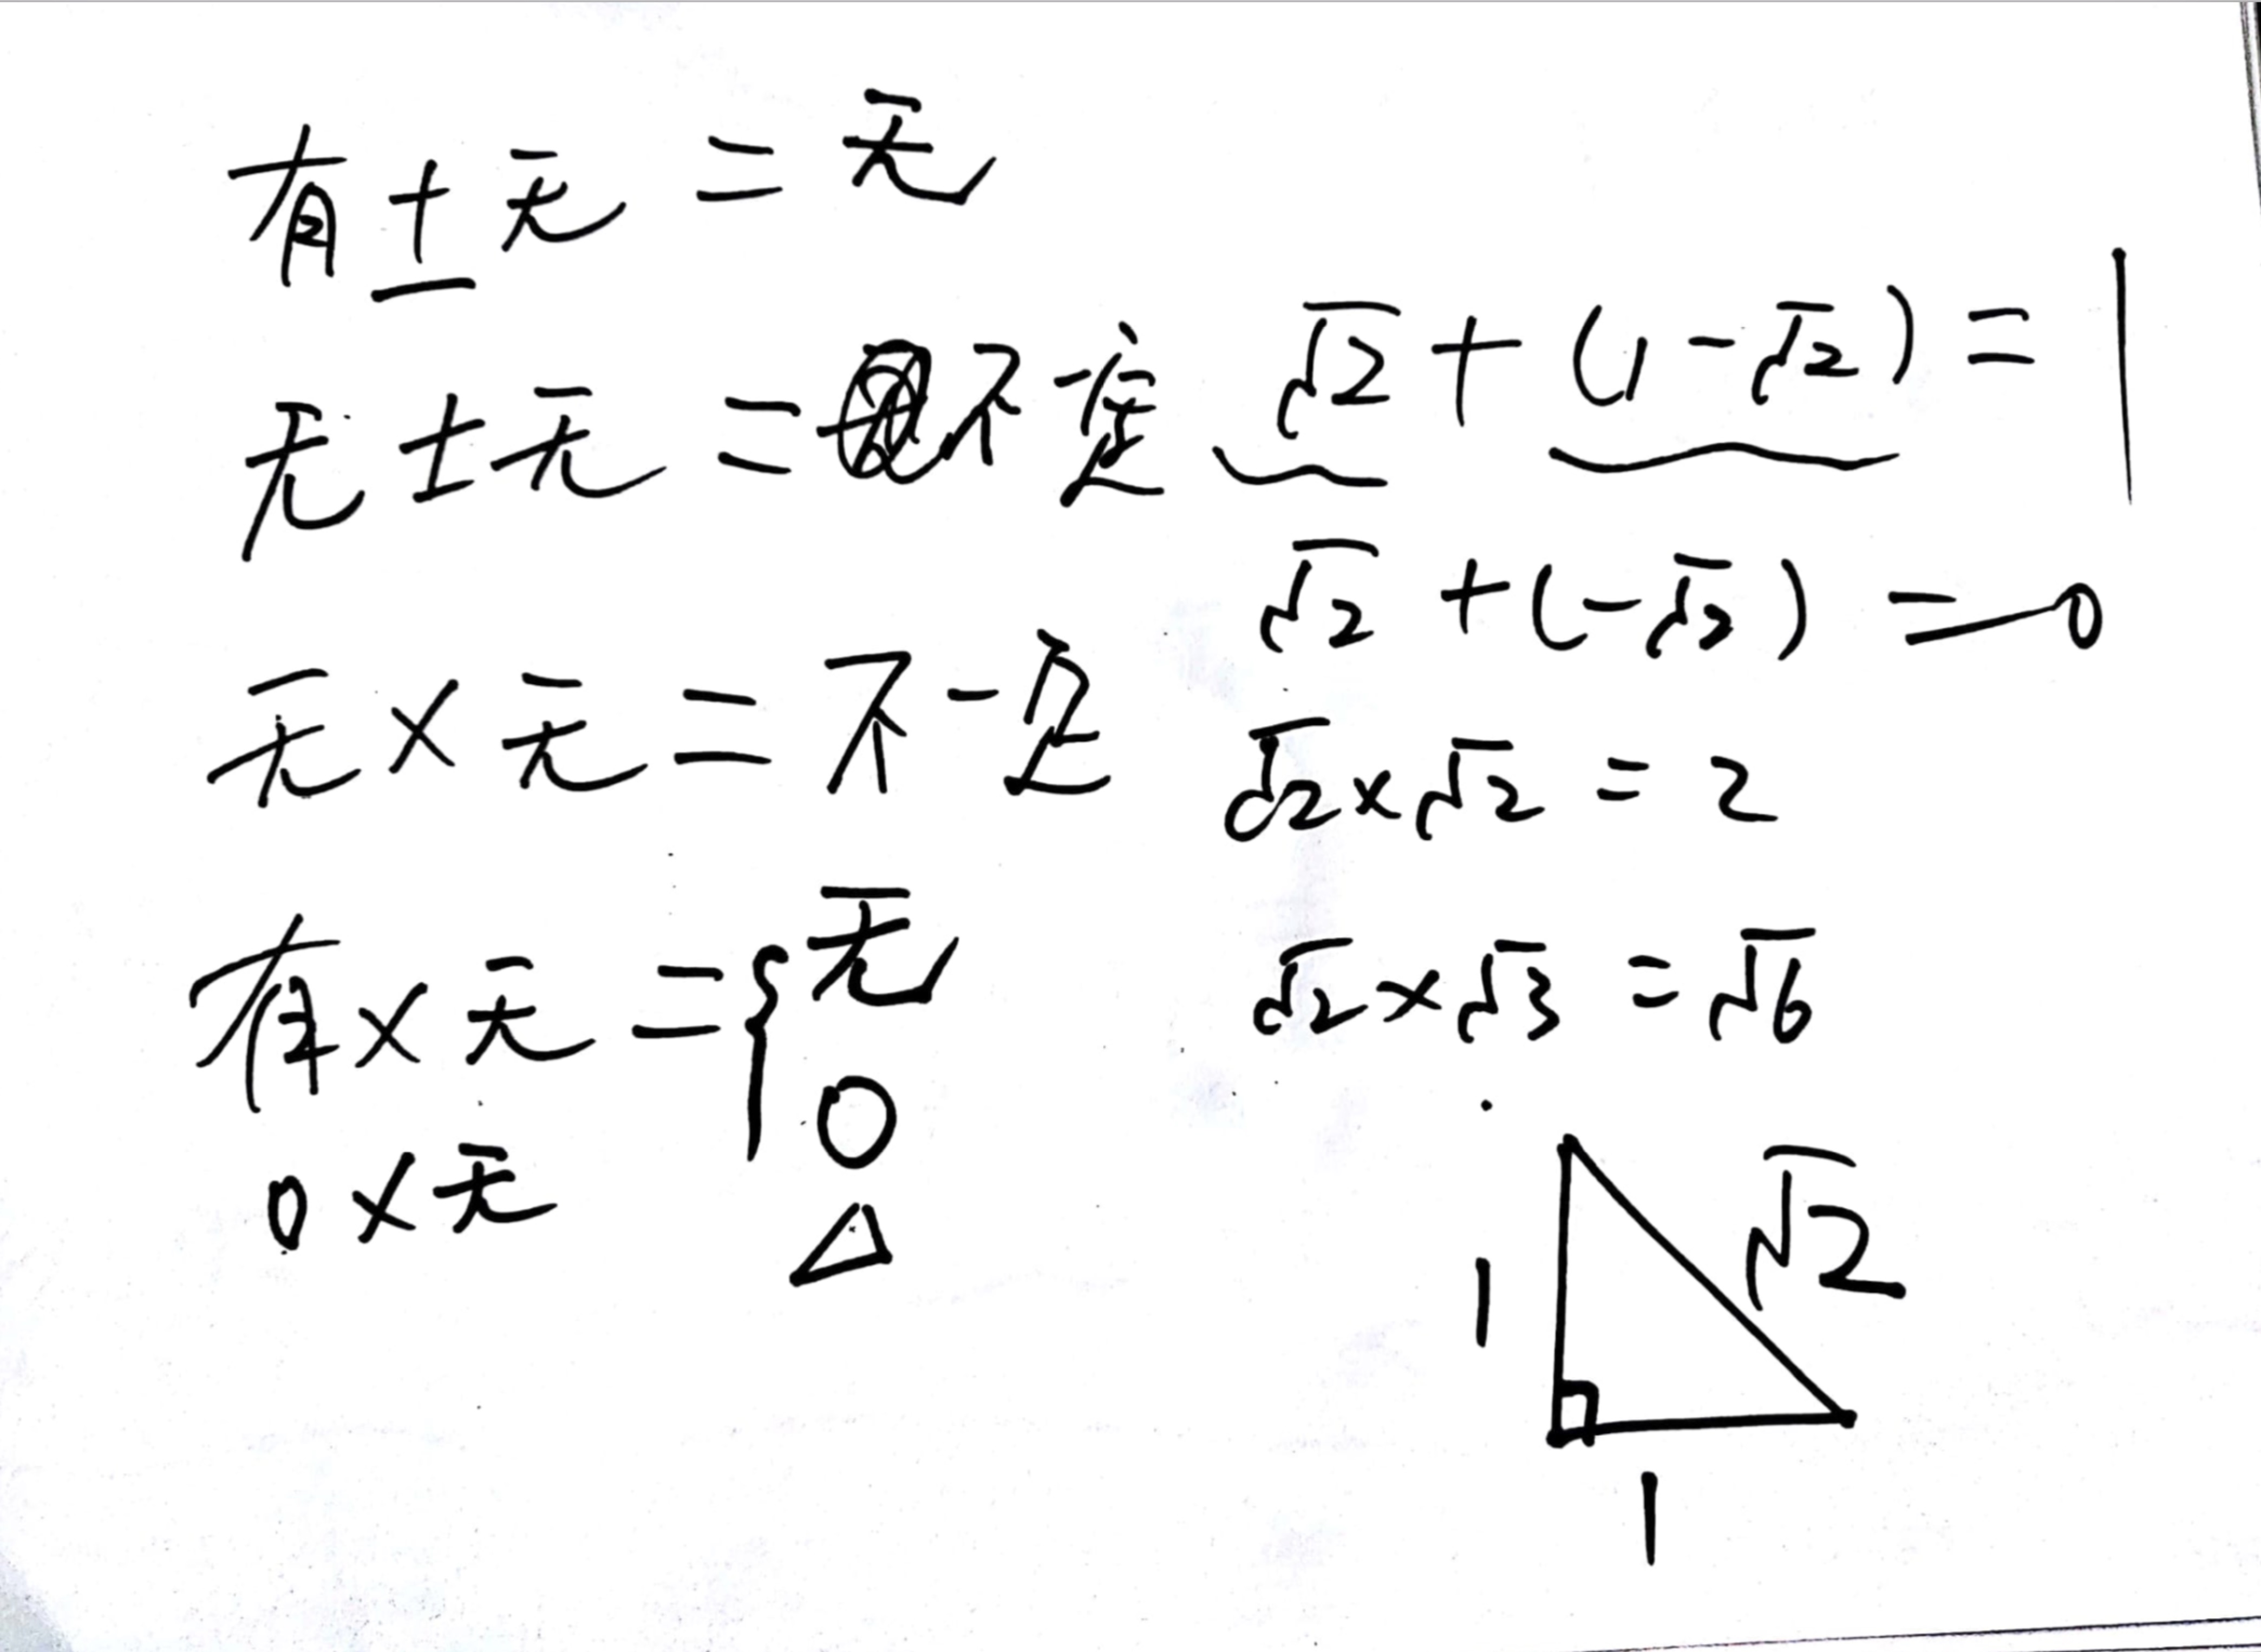 有±无=无
无±无=不一定
√2+(1-√2)=1
√2+(-√2)=0
无×无=不一定
√2×√2=2
有×无={无
0
△
√2×√3=√6
0×无
1
√2
1